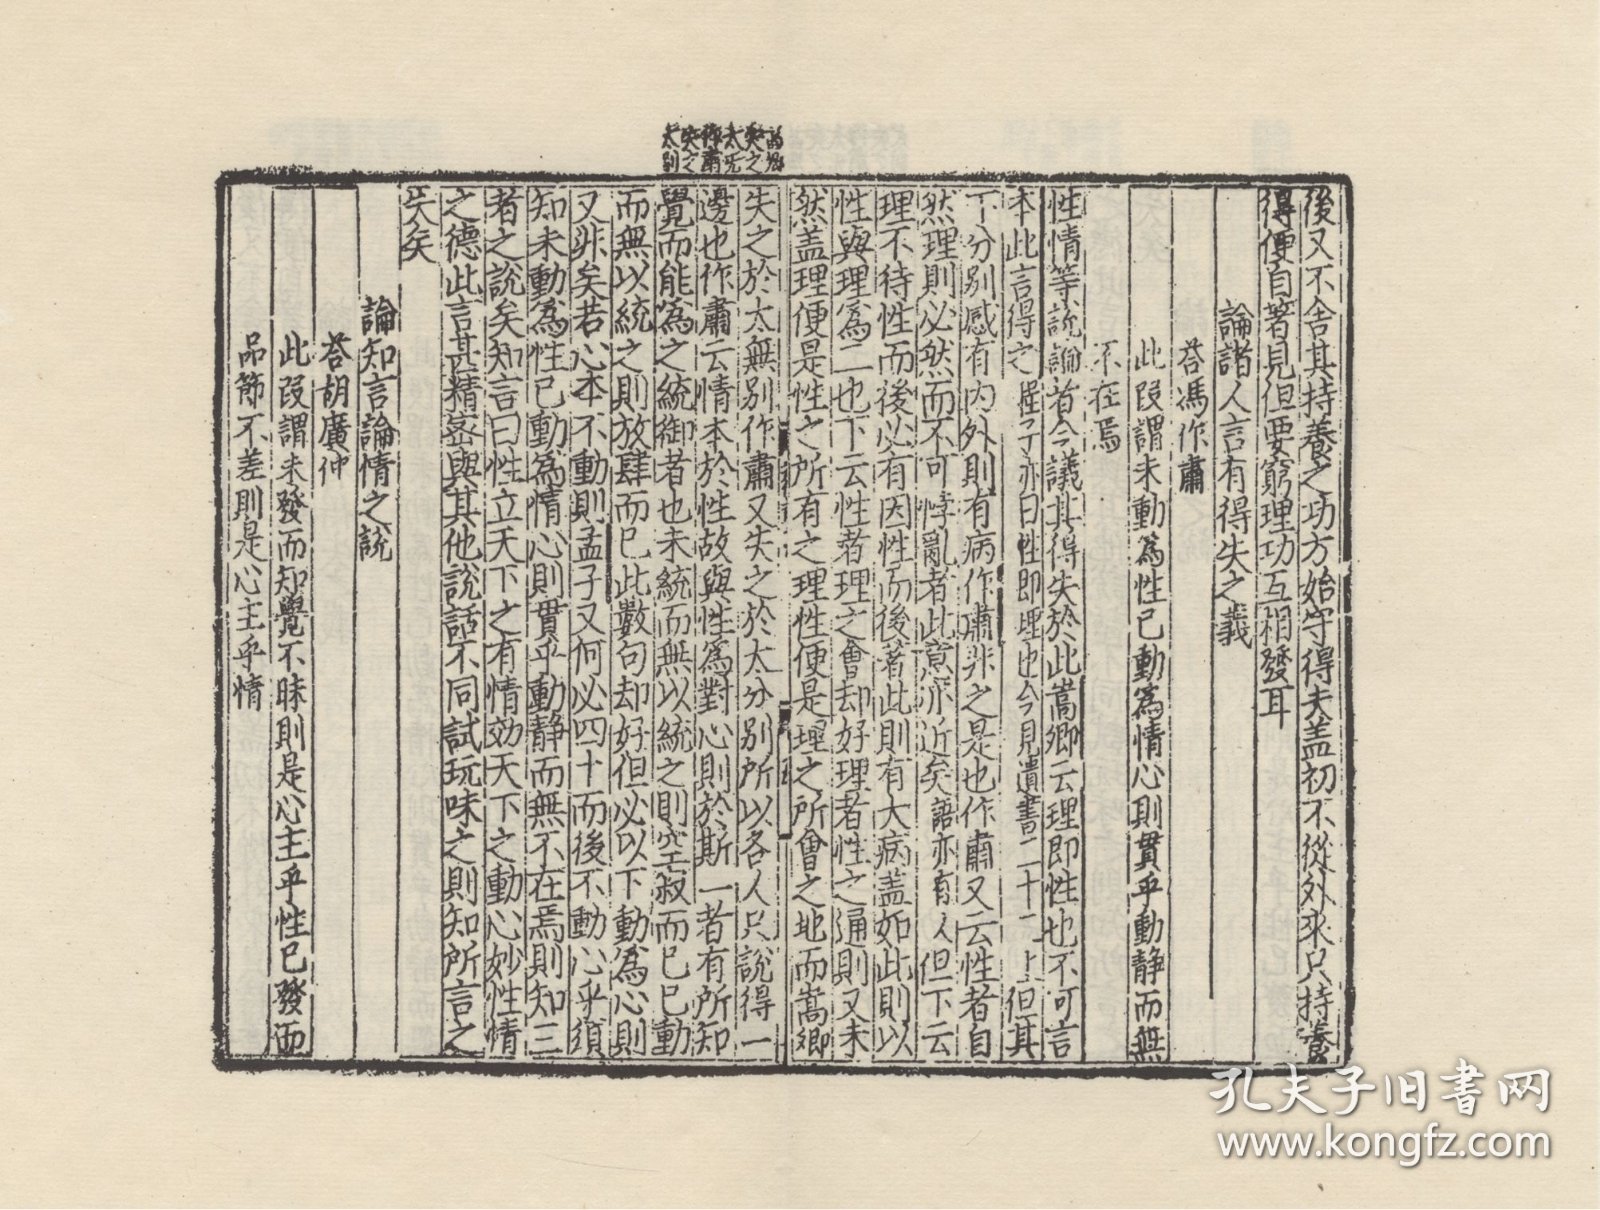 後又不舍其持養之功方始守得夫盖初不從外來只持養
得便自著見但要窮理功互相發耳
論諸人言有得失之義
荅馮作肅
此段謂未動爲性已動爲情心則貫乎動静而無
不在焉
性情等說諭者今議其得失於此嵩卿云理即性也不可言
本此言得之 亦曰性即理也今見遺書二十二上但其
下分別感有内外則有病作肅非之是也作肅又云性者自
然理則必然而不可悖亂者此意亦近矣語亦有人但下云
理不待性而後必有因性而後著此則有大病盖如此則以
性與理爲二也下云性者理之會却好理者性之通則又未
然盖理便是性之所有之理性便是理之所會之地而嵩卿
嵩卿
失之
太无
作肅
失之
太別
失之於太無別作肅又失之於太分別所以各人只說得一
邊也作肅云情本於性故與性爲對心則於斯一者有所知
覺而能爲之統御者也未統而無以統之則空寂而已已動
而無以統之則放肆而已此數句却好但必以下動爲心則
又非矣若心本不動則孟子又何必四十而後不動心乎須
知未動爲性已動爲情心則貫乎動静而無不在焉則知三
者之說矣知言曰性立天下之有情効天下之動心妙性情
之德此言甚精宻與其他說話不同試玩味之則知所言之
失矣
論知言論情之說
荅胡廣仲
此段謂未發而知覺不昧則是心主乎性已發而
品節不差則是心主乎情
孔夫子旧书网
www.kongfz.com